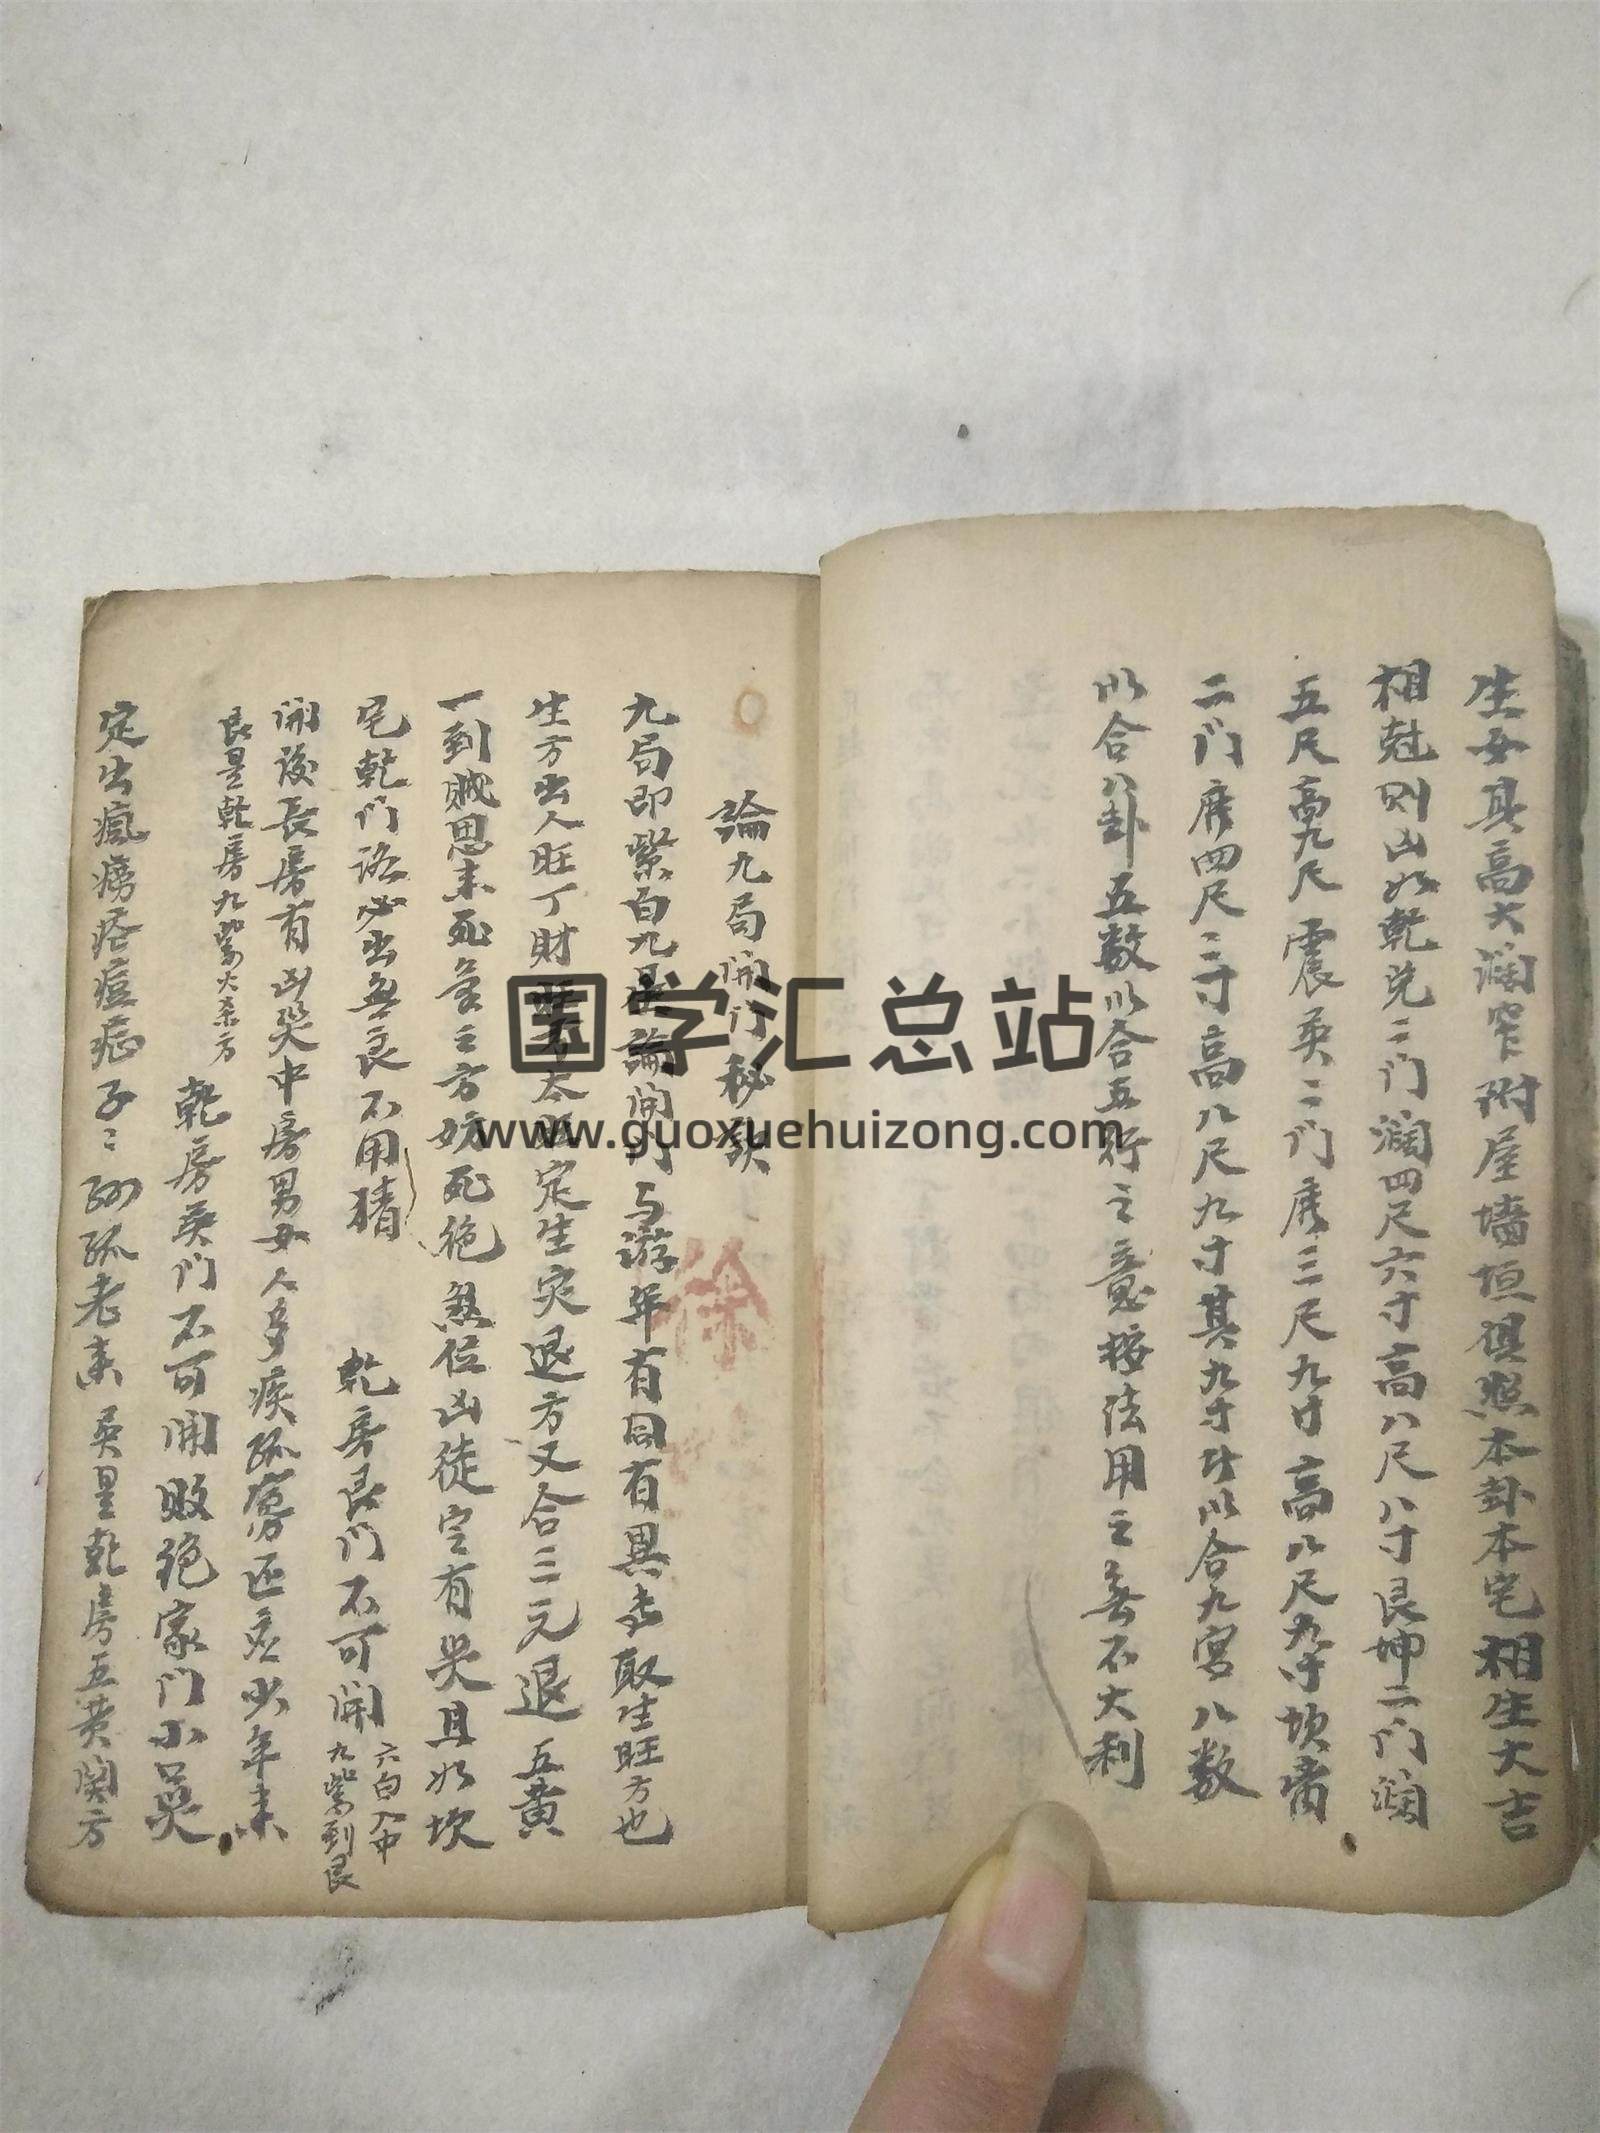 生女其高大濶窄附屋墻垣俱照本卦本宅相生大吉
相尅则凶如乾兑二门濶四尺六寸高八尺八寸艮坤二门濶
五尺高九尺震巽二门广三尺九寸高八尺九寸坎离
二门广四尺二寸高八尺九寸其九寸者以合九宫八数
以合八卦五数以合五行之意按法用之無不大利
論九局開门秘訣
九局即紫白九星論開门与遊年有同有異去取生旺方也
生方出人旺丁財太旺定生灾退方又合三元退五黄
一到賊思来死氣之方妨死绝煞位凶徒定有哭且如坎
宅乾门路必出無良不用猜
乾房艮门不可開
六白入中
九紫到艮
開後長房有凶哭中房男女人多疾孤寡还應少年来
艮是乾房九紫大杀方
乾房巽门不可開败绝家门小哭
定出瘋癆痞痘症子二孤老来巽是乾房五黄関方
徐
国学汇总站
www.guoxuehuizong.com